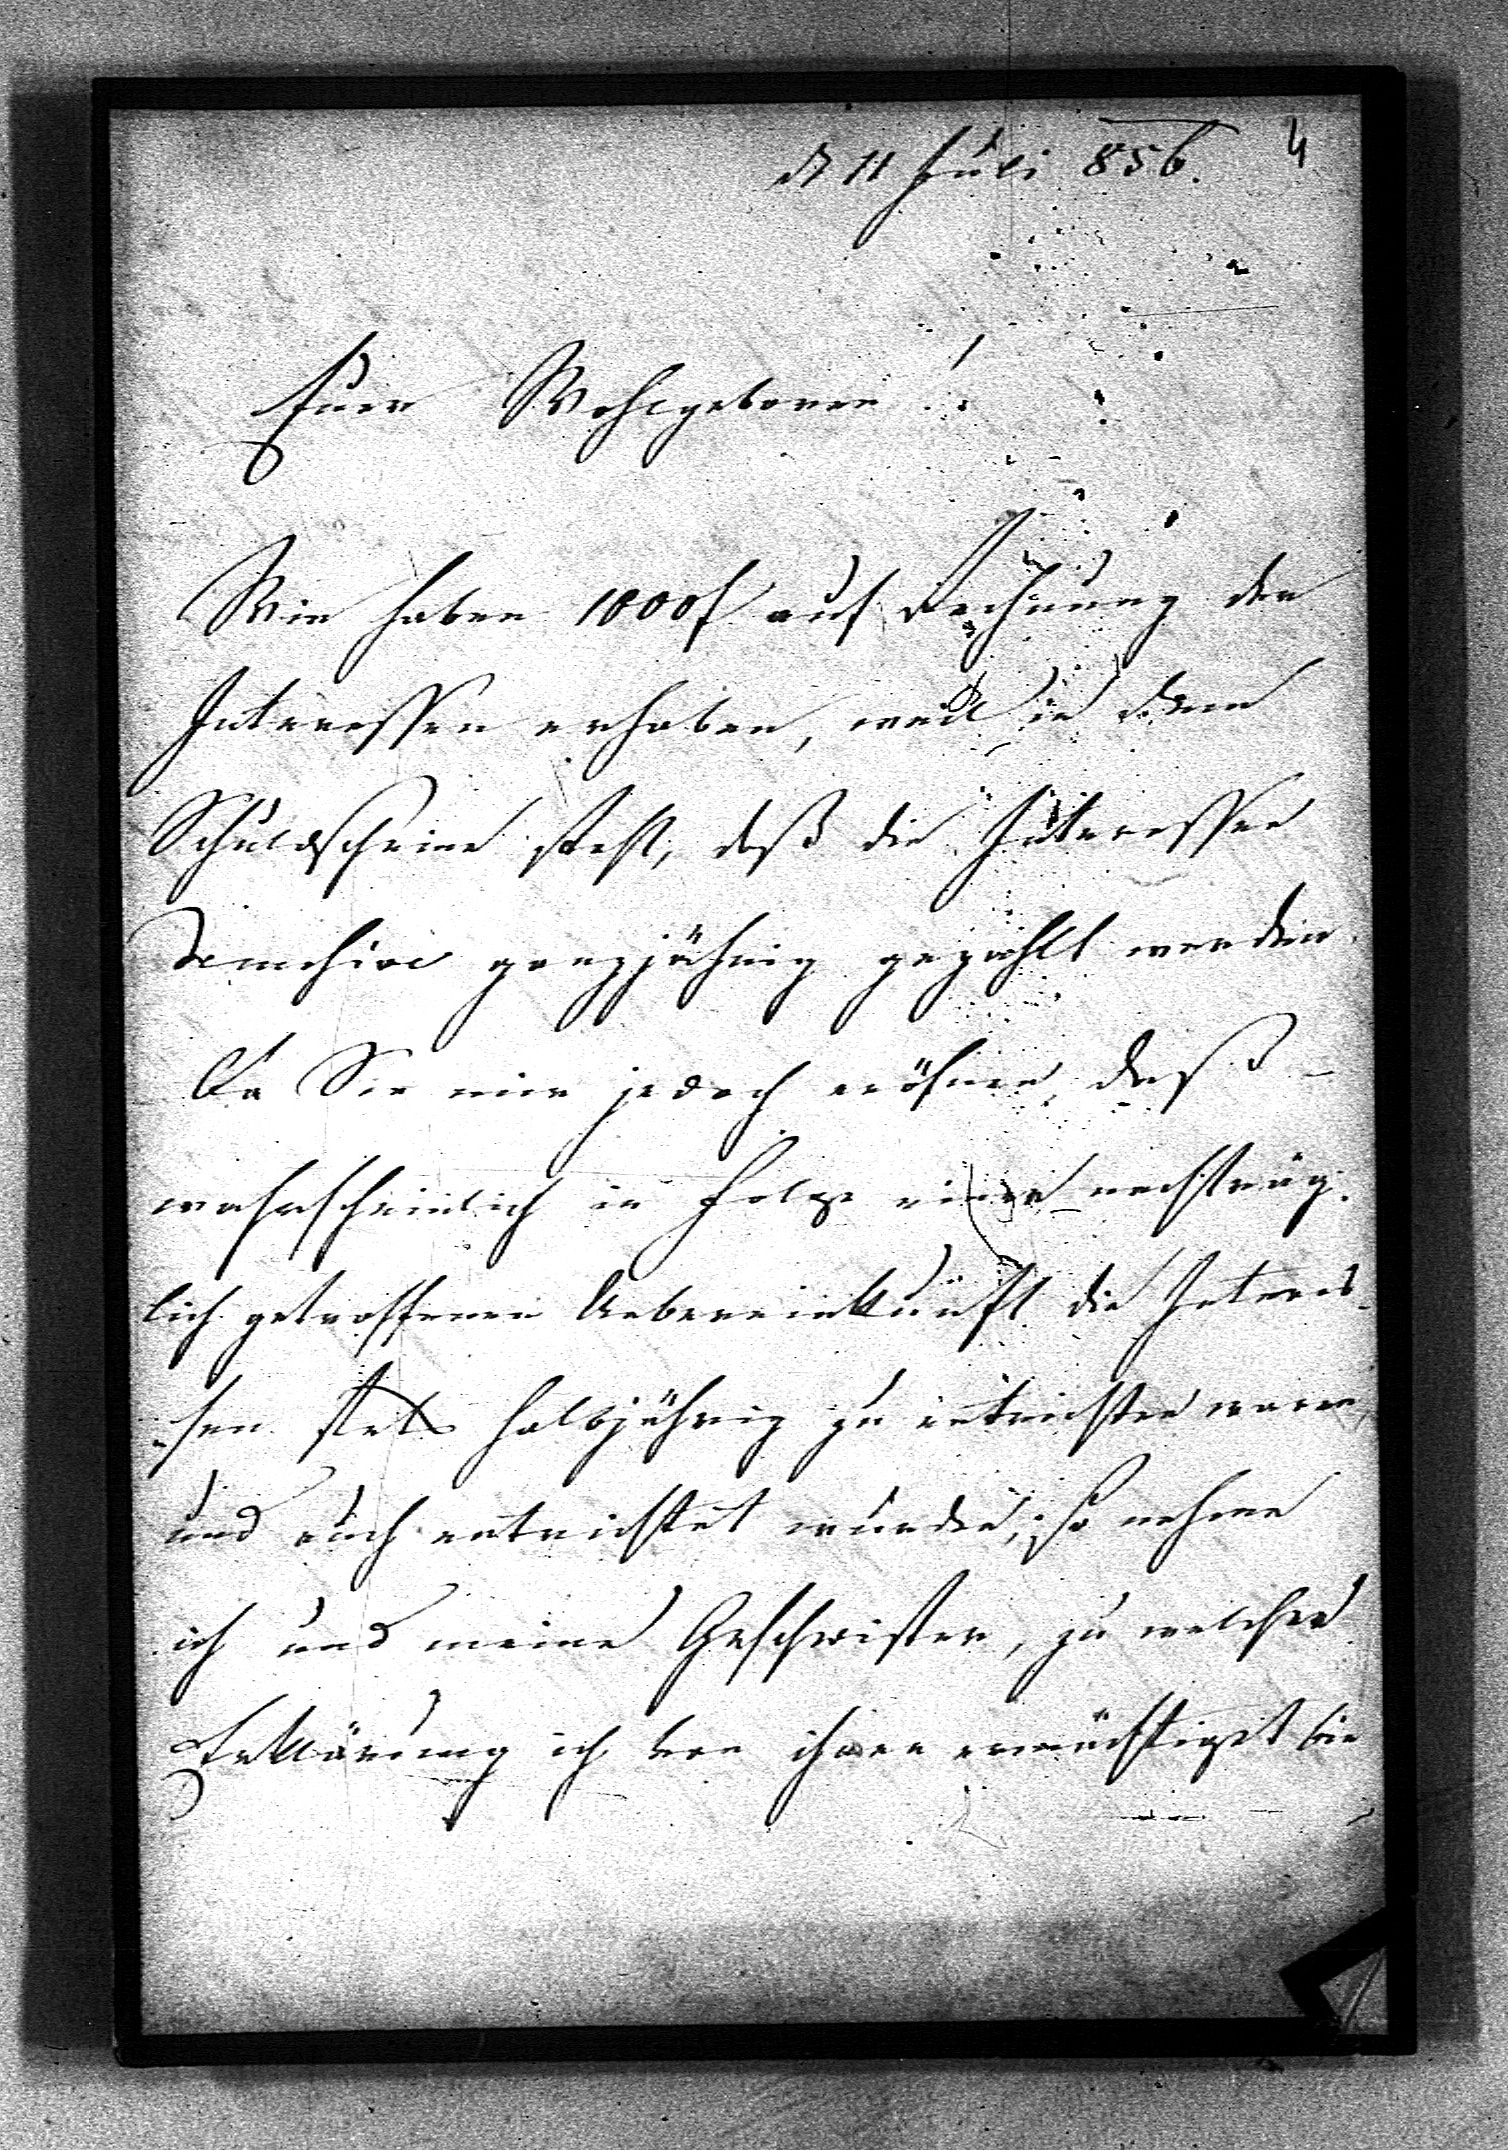 d 11 Juli 856. 4
Euer Wohlgeboren!
Wir haben 1000f auf Rechnung der
Interessen erhoben, weil in dem
Schuldscheine steht, daß die Interessen
ganzjährig gezahlt werden.
Da Sie mir jedoch eröfnen, daß
wahrscheinlich in Folge einer nachträg-
lich getroffenen Uebereinkunft die Interes-
sen stets halbjährig zu entrichten waren,
und auch entrichtet wurden, so nehme
ich und meine Geschwister, zu welcher
Erklärung ich von ihnen ermächtiget bin